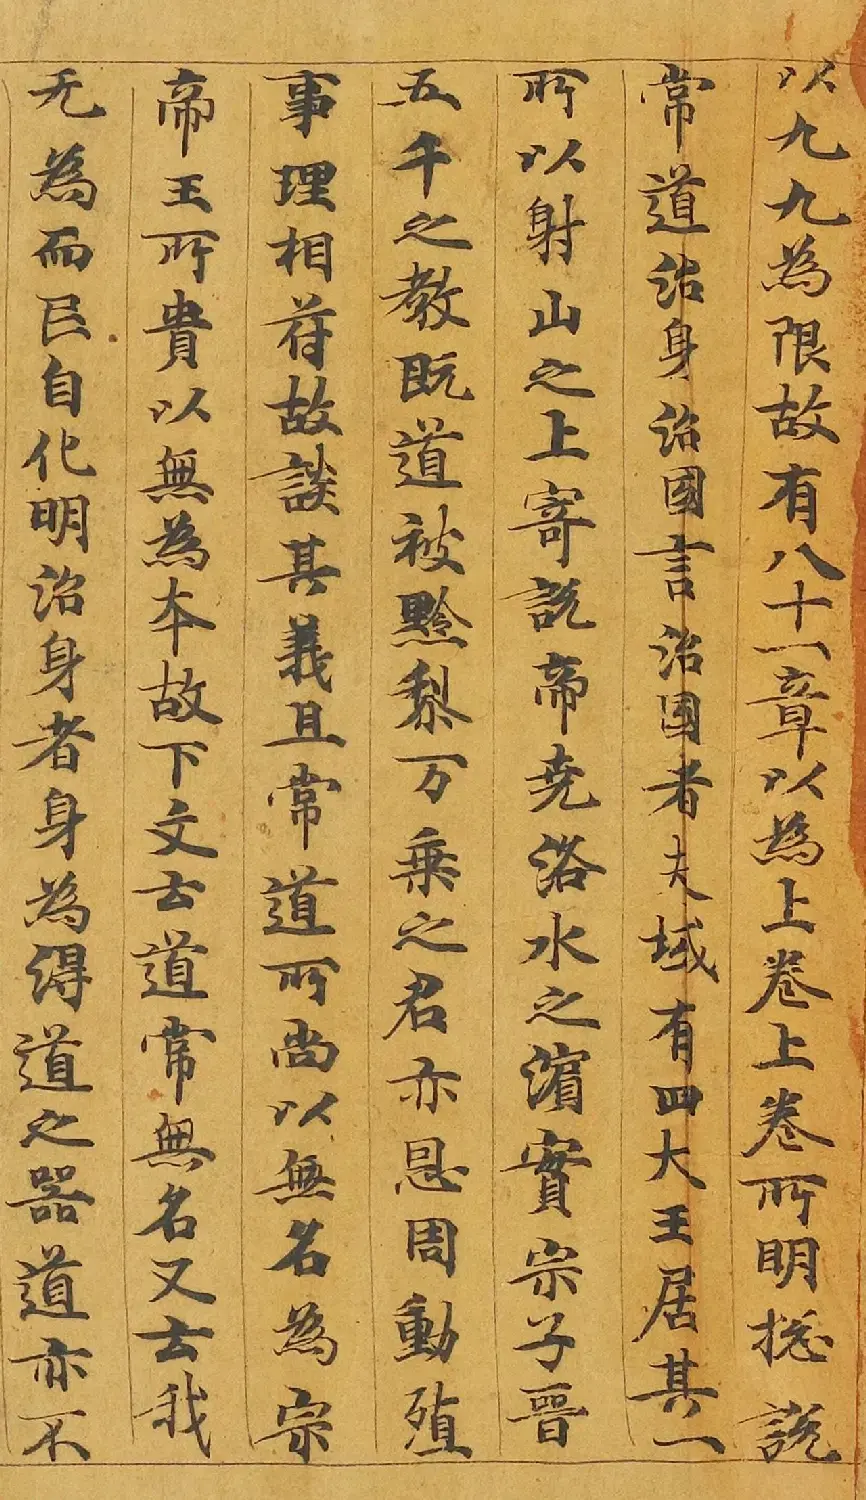 以九九為限故有八十一章以為上卷上卷所明揔說
常道治身治國言治國者夫域有四大王居其一
所以射山之上寄說帝尭浴水之濵實宗子晉
五千之教既道被黔梨万乘之君亦恩周動殖
事理相苻故談其義且常道所尚以無名為宗
帝王所貴以無為本故下文云道常無名又云我
无為而民自化明治身者身為得道之器道亦不